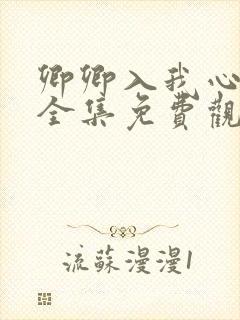 卿卿入我心
全集免費觀
流蘇漫漫1